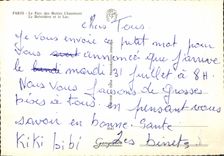 PARIS - Le Parc des Buttes Chaumont
Le Belvédère et le Lac
Chers Tous.
Je vous envoie ce petit mot pour
Vous annoncer que j'arrive
le mardi 31 juillet à 8H.
Nous Vous faisons de grosses
bises à tous en pensant vous
savoir en bonne santé
Kiki bibi Les binets